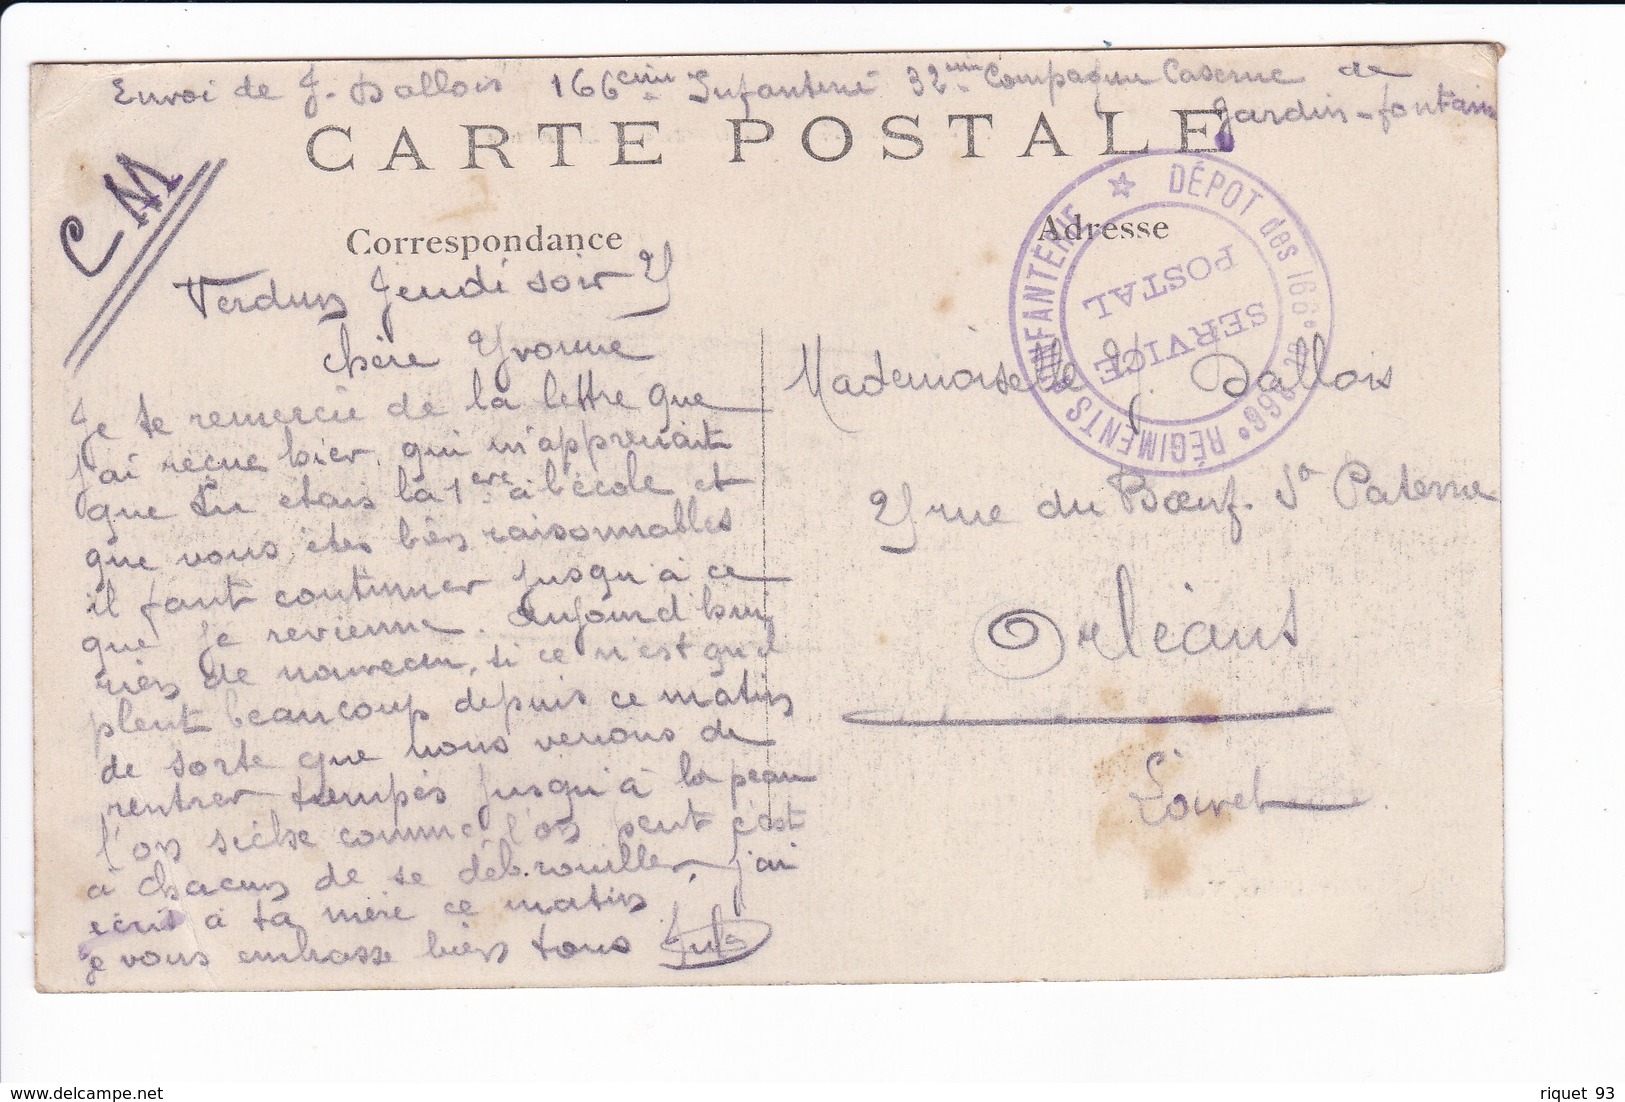 Envoi de J. Dallois 166ème Infanterie 32ème Compagnie Caserne de
Jardin-fontaine
CARTE POSTALE
CM
Correspondance
Adresse
DÉPOT des 166e & 366e RÉGIMENTS INFANTERIE
SERVICE
POSTAL
Verdun Jeudi soir
Chère Yvonne
Je te remercie de la lettre que
j'ai reçue hier, qui m'apprenait
que tu etais la 1ère à l'école et
que vous êtes bien raisonnables
il faut continuer jusqu'à ce
que je revienne. Aujourd'hui
rien de nouveau, si ce n'est qu'il
pleut beaucoup depuis ce matin
de sorte que nous venons de
rentrer trempés jusqu'à la peau
l'on sèche comme l'on peut c'est
à chacun de se débrouiller, j'ai
ecris à ta mère ce matin
je vous embrasse bien tous
Mademoiselle Y. Dallois
rue du Bœuf. St Paterne
Orléans
Loiret
riquet 93